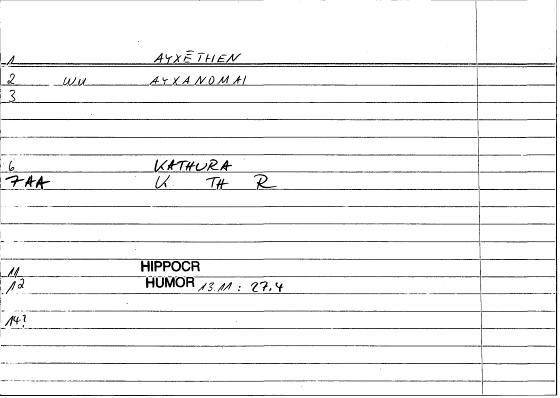 1 AYXĒTHEN
2 WU AYXANOMAI
3
6 KATHURA
7AA K TH R
11 HIPPOCR
12 HUMOR 13.11: 27.4
14?